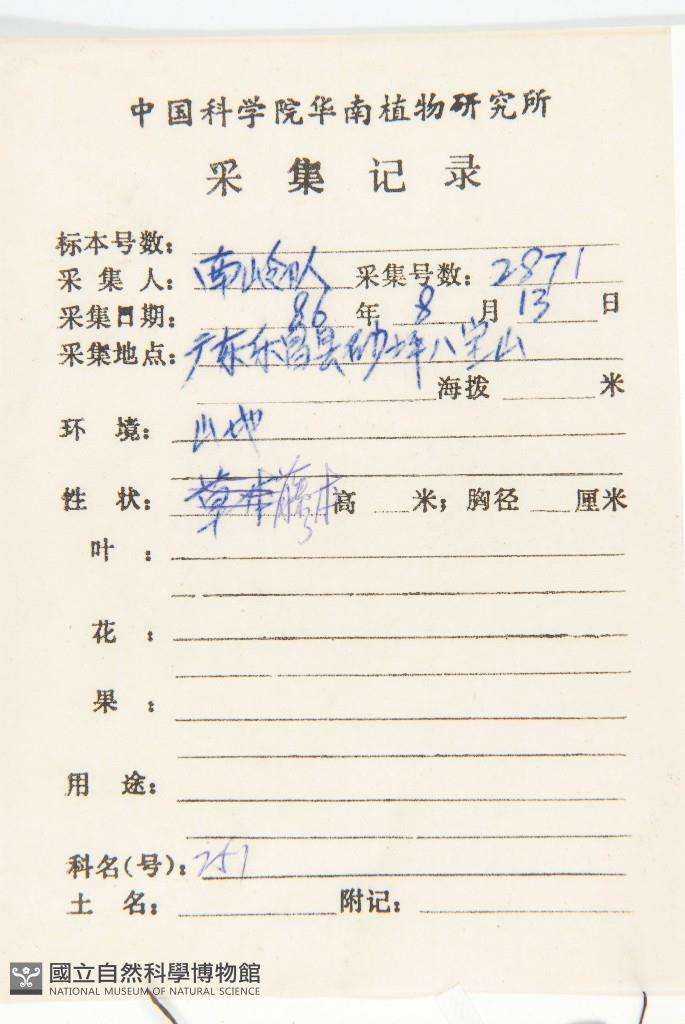 中国科学院华南植物研究所
采集记录
标本号数:
采集人: 南岭队 采集号数: 2871
采集日期: 86 年 8 月 13 日
采集地点: 广东乐昌县砂坪八宝山
海拨 米
环境: 山地
性状: 草本 藤本 高 米; 胸径 厘米
叶:
花:
果:
用途:
科名(号): 251
土名: 附记:
國立自然科學博物館
NATIONAL MUSEUM OF NATURAL SCIENCE